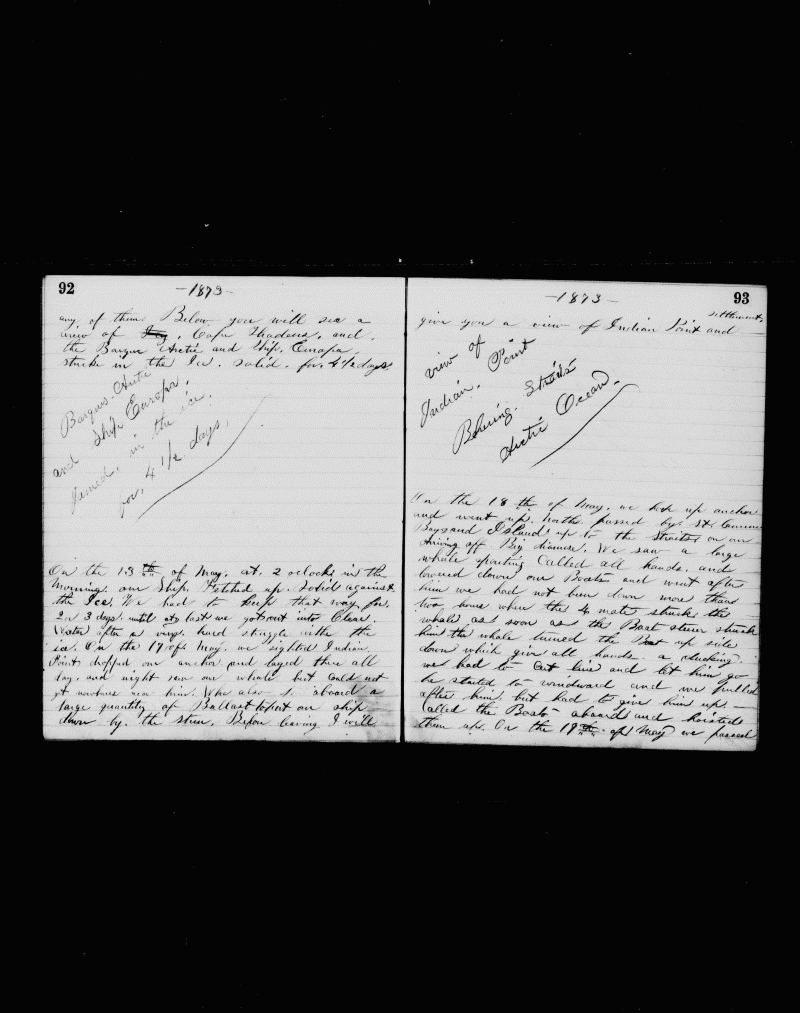 92
-1873-
any of them. Below you will see a
view of Cape Thadeus, and.
the Barque Arctic and Ship. Europa
stuck in the Ice. solid. for. 4 1/2 days
Barques. Arctic
and Ship Europa.
Jamed. in the ice.
for, 4 1/2 days,
On the 13 th of May. at. 2 oclocks in the
Morning. our Ship. Fetched up. Solid against
the Ice. We had to keep that way for.
2 or 3 days. until at last we got out into Clear.
Water after a very. hard struggle with the
ice. On the 17 of May. we sighted Indian.
Point dropped our anchor and layed there all
day. and night saw one whale but could not
get near him. We also aboard a
large quantity of Ballast to put our ship
down by. the stern. Before leaving I will
93
-1873-
settlements
give you a view of Indian Point and
view of
Indian. Point
Behring. Straits
Arctic Ocean.
On the 18 th of May. we took up anchor
and went up. North. passed by. St.
Bay and Island up to the Straites on our
Arriving off Big. We saw a large
whale spouting Called all hands. and
lowered down our Boats and went after
him we had not been down more than
two hours when the 4 mate struck the
whale as soon as the Boat steer struck
him the whale turned the Boat up side
down which give all hands a ducking.
we had to cut line and let him go
he started to windward and we pulled
after him. but had to give him up. —
Called the Boats aboard and hoisted
them up. On the 19 th of May we passed